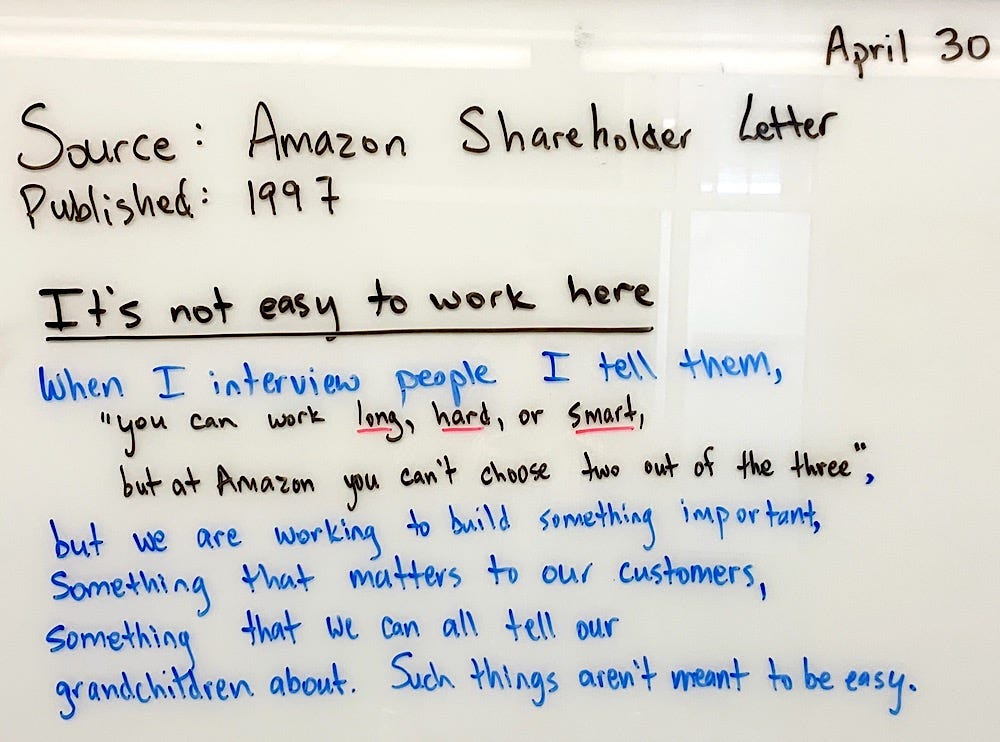 April 30
Source: Amazon Shareholder Letter
Published: 1997
It's not easy to work here
When I interview people I tell them,
"you can work long, hard, or smart,
but at Amazon you can't choose two out of the three",
but we are working to build something important,
Something that matters to our customers,
something that we can all tell our
grandchildren about. Such things aren't meant to be easy.